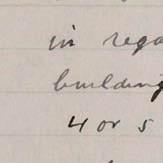 in rega
building
4 or 5